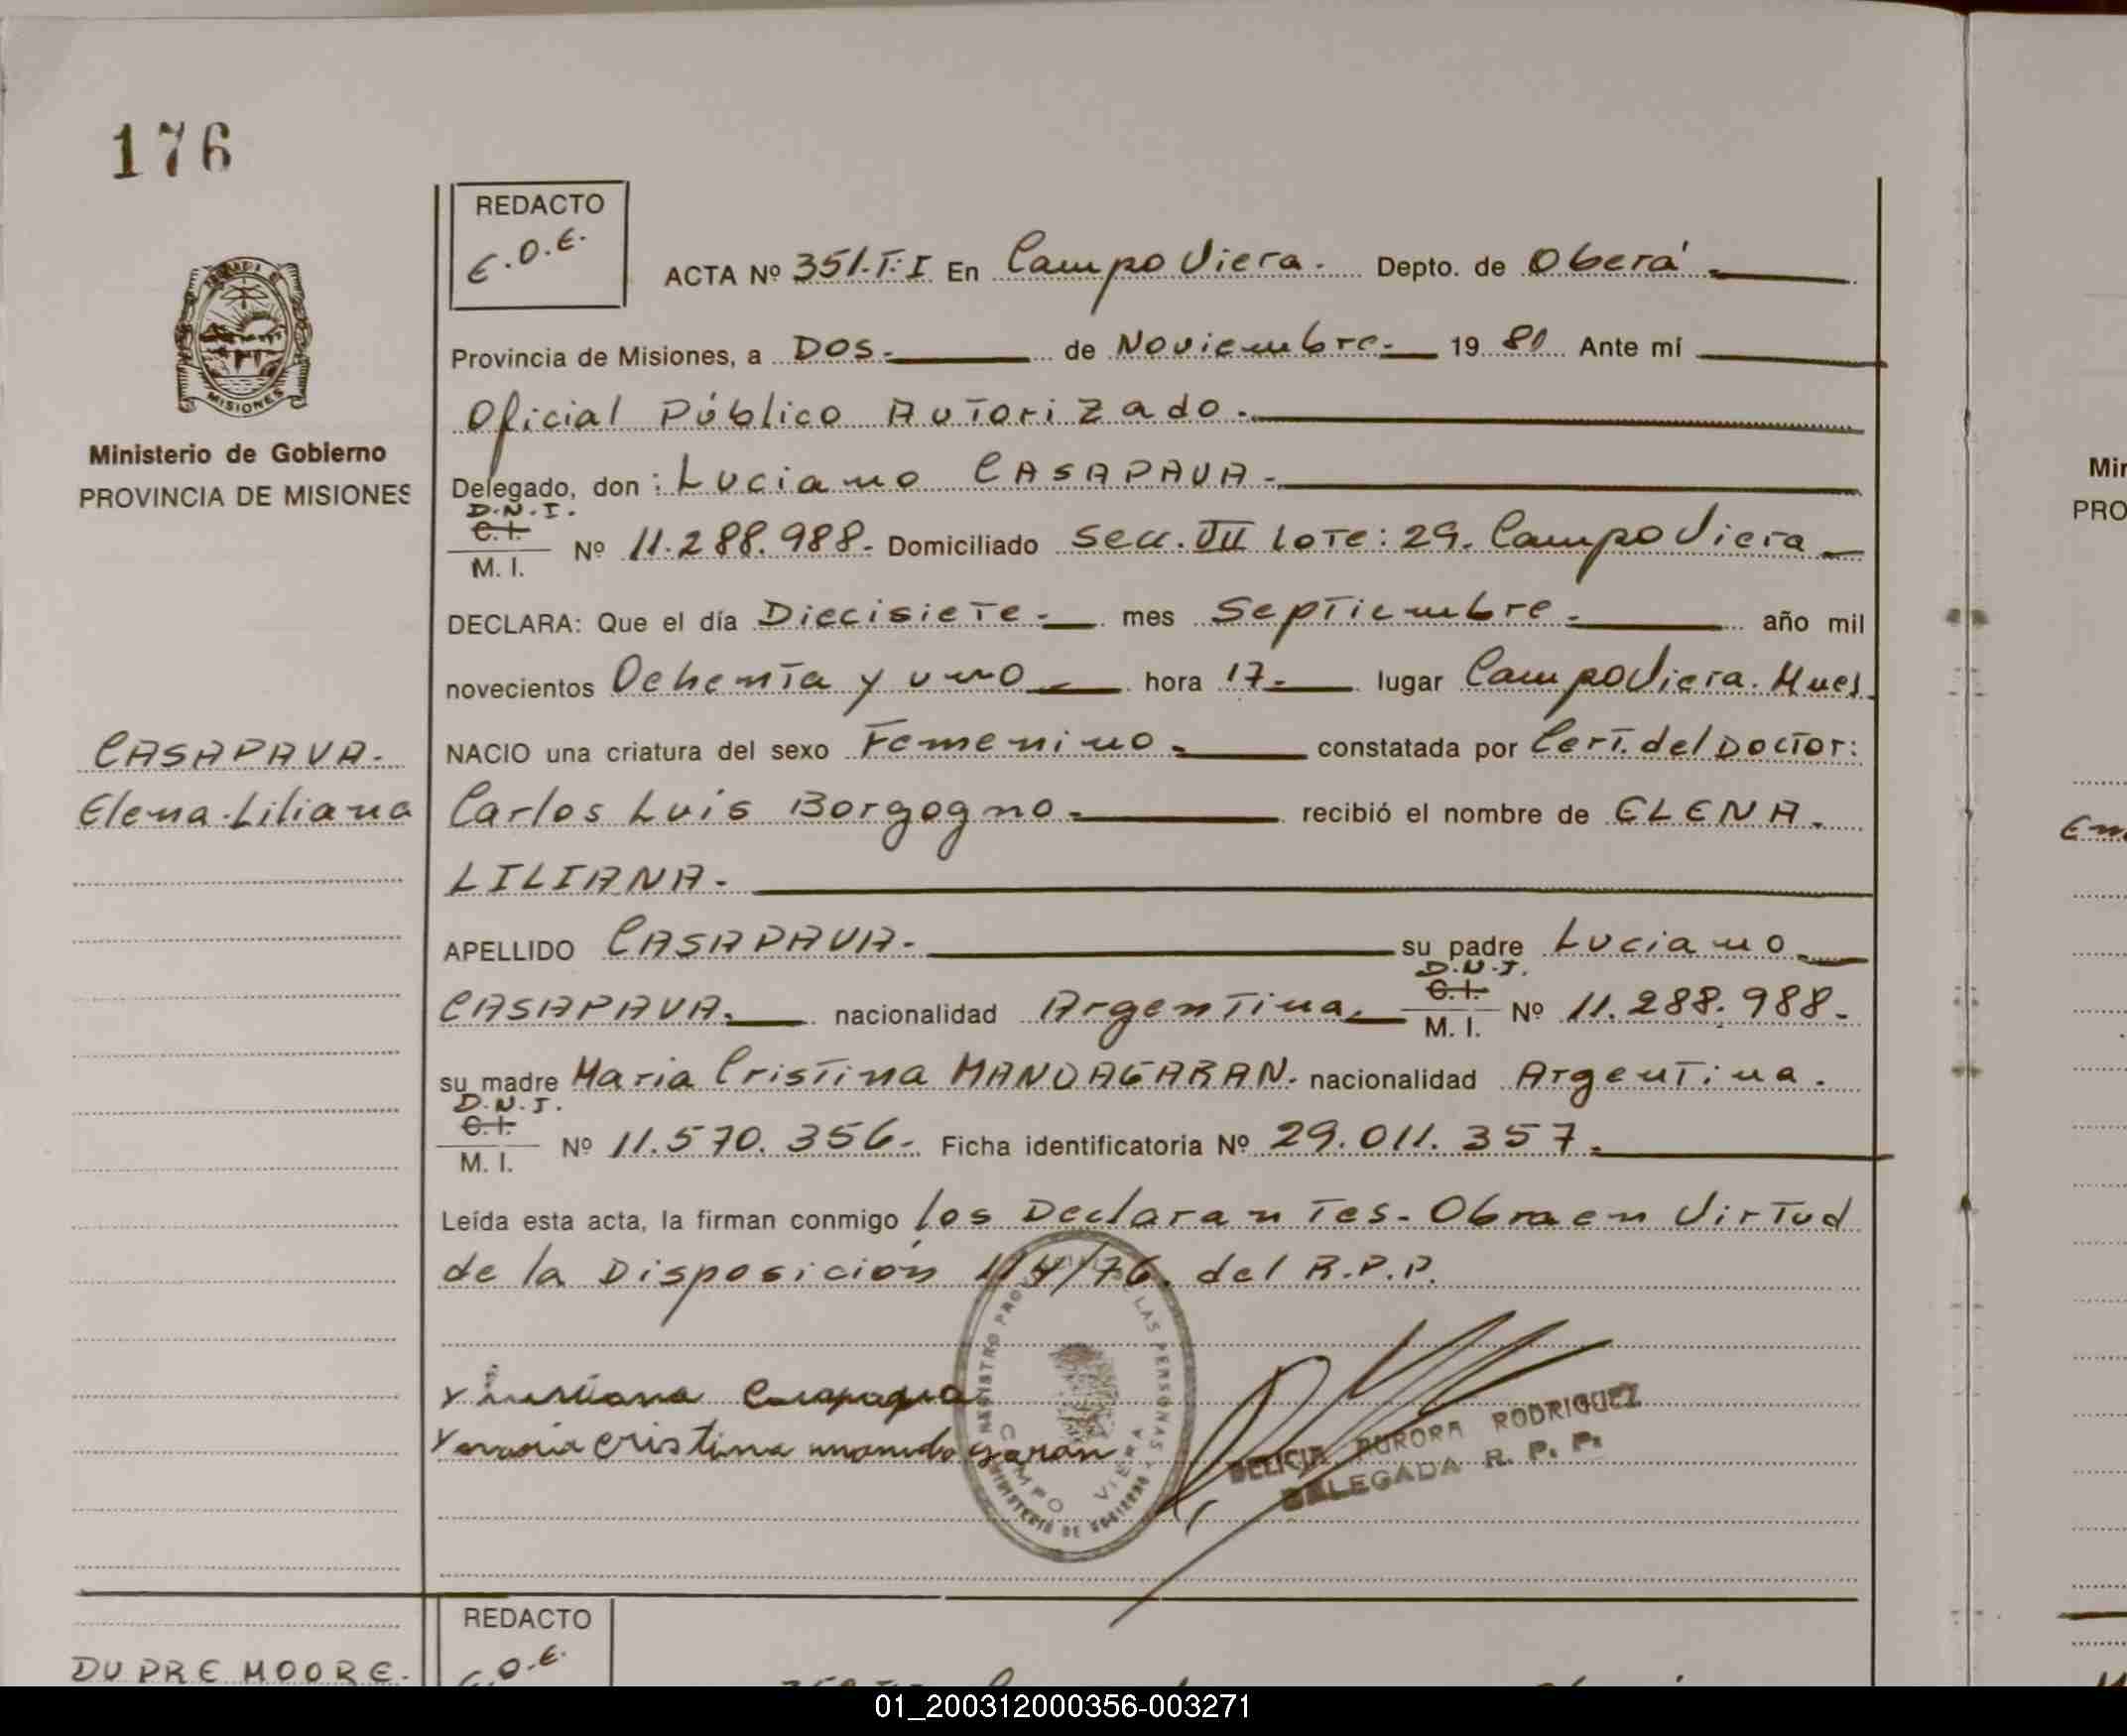 176
REDACTO
E.O.E.
ACTA Nº 351.T:I En Campo Viera. Depto. de Oberá
Provincia de Misiones, a DOS.- de Noviembre.- 19 81 Ante mí
Oficial Público Autorizado.-
MISIONES
Ministerio de Gobierno
PROVINCIA DE MISIONES
Delegado, don: Luciano CASAPAVA.-
D.N.I.
C.I.
M. I. Nº 11.288.988.- Domiciliado Secc. VII Lote: 29. Campo Viera
DECLARA: Que el día Diecisiete.- mes Septiembre.- año mil
novecientos Ochenta y uno hora 17.- lugar Campo Viera. Mnes
CASAPAVA.
Elena Liliana
NACIO una criatura del sexo Femenino.- constatada por Cert. del Doctor:
Carlos Luis Borgogno.- recibió el nombre de ELENA.
LILIANA.-
APELLIDO CASAPAVA.- su padre Luciano
CASAPAVA. nacionalidad Argentina.
D.N.I.
C.I.
M. I. Nº 11.288.988.-
su madre Maria Cristina MANDAGARAN. nacionalidad Argentina.
D.N.I.
C.I.
M. I. Nº 11.570.356.- Ficha identificatoria Nº 29.011.357.
Leída esta acta, la firman conmigo los Declarantes- Obra en Virtud
de la Disposición 114/76. del R.P.P.
REGISTRO LAS PERSONAS
CAMPO VIERA
MINISTERIO DE GOBIERNO
maria cristina mandagaran
DELICIA AURORA RODRIGUEZ
DELEGADA R. P. P.
REDACTO
E.O.E.
DUPRE MOORE.
Min
PRO
01_200312000356-003271